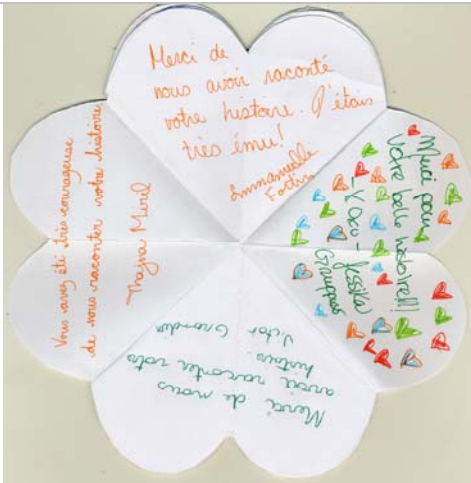 Merci de
nous avoir raconté
votre histoire. J'étais
très ému!
Emmanuelle
Merci pour
votre belle histoire!!!
Jessika
Merci de nous
avoir raconter votre
histoire
Victor
Vous avez été très courageuse
de nous raconter votre histoire